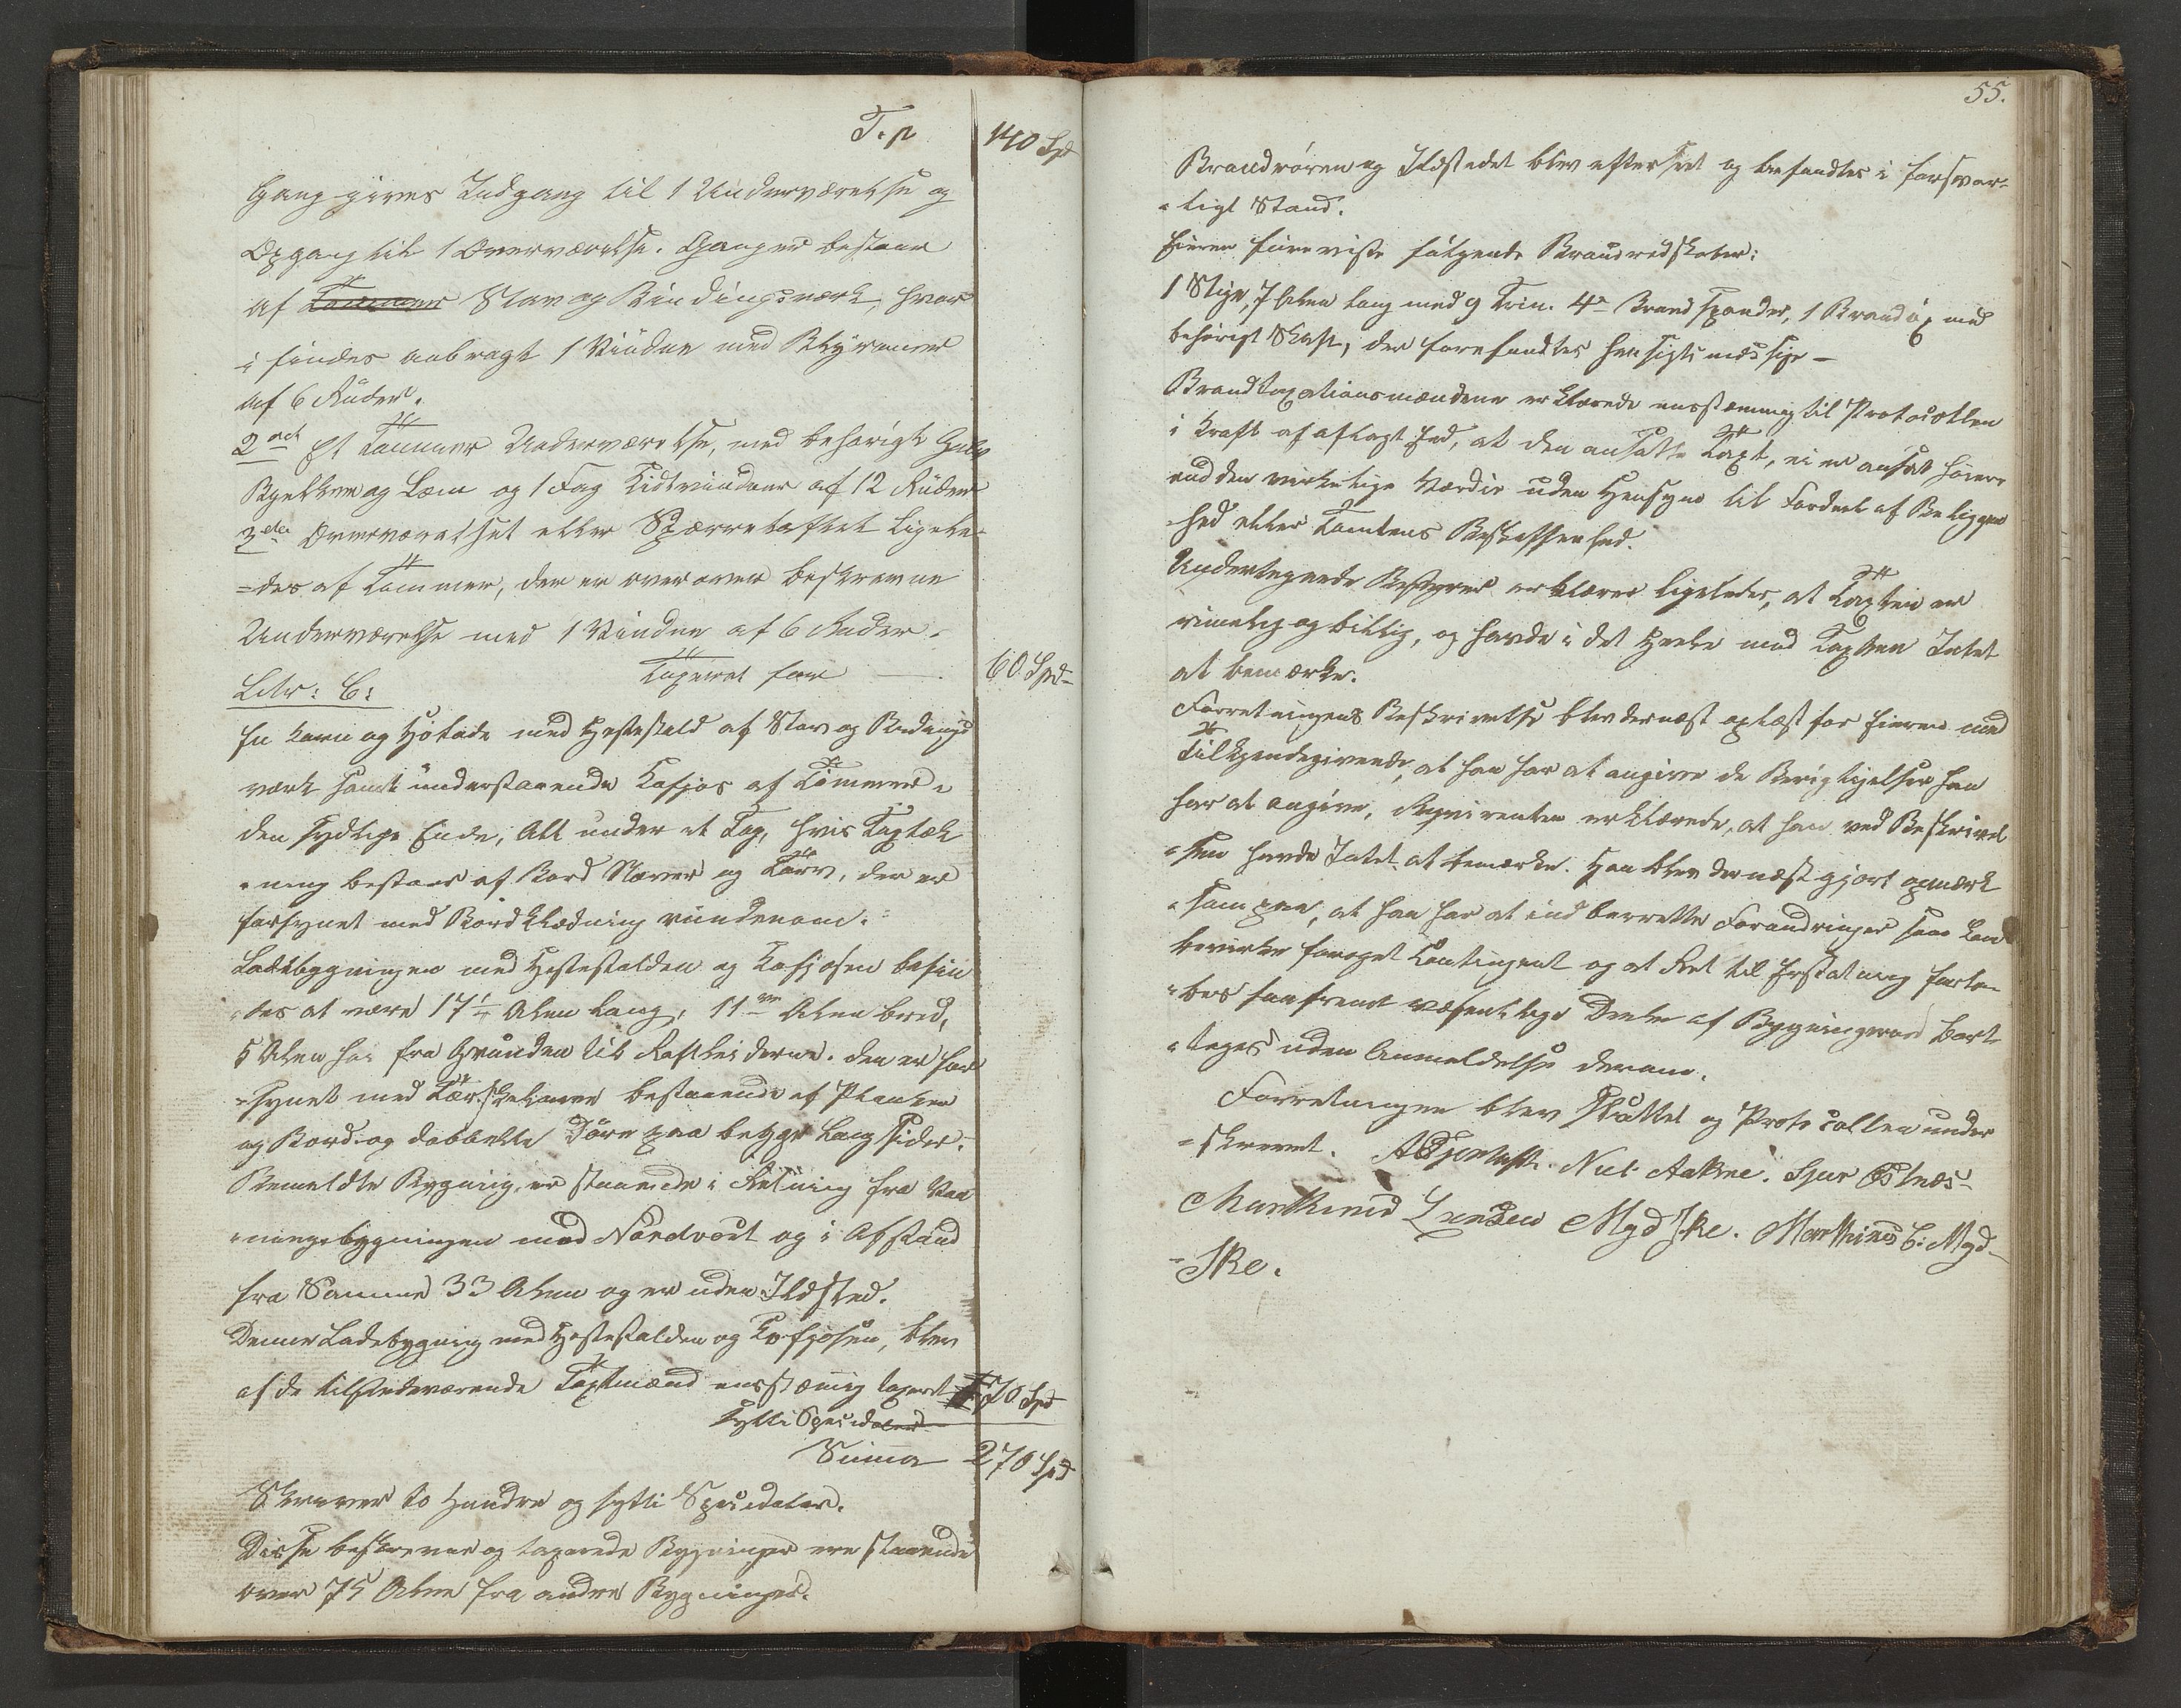 T. p 140 Spd
Gang gives Indgang til 1 Underværelse og
Opgang til 1 Overværelse. Gangen bestaar
af Tømmer Stav og Bindingsværk, hvor
i findes anbragt 1 Vindue med Blyrammer
af 6 Ruder.
2det Et Tømmer Underværelse, med behørigt Gulv
Bjelker og Lem og 1 Fag Kidtvinduer af 12 Ruder
3die Overværelset eller Sperreloftet ligele-
=des af Tømmer, der er over oven beskrevne
Underværelse med 1 Vindue af 6 Ruder.
Taxeret for 60 Spd
Litr: C:
En Korn og Høelade med Hestestald af Stav og Bindings
værk samt understaaende Kofjøs af Tømmer i
den sydlige Ende, Alt under et Tag, hvis Tagtæk
=ning bestaar af Bord Næver og Torv, der er
forsynet med Bordklædning rundenom.
Ladebygningen med Hestestalden og Kofjøsen befin
=des at være 17½ Alen lang, 11 Alen bred,
5 Alen høi fra Grunden til Raftleiderne. Den er for
=synet med bestaaende af Planker
og Bord og dobbelte Døre paa begge Langsider.
Bemeldte Bygning er staaende i Retning fra Vaa
=ningsbygningen mod Nordvest og i Afstand
fra Samme 33 Alen og er uden Ildsted.
Denne Ladebygning med Hestestalden og Kofjøsen, blev
af de tilstedeværende Taxtmænd enstemig taxeret 70 Spd
Sytti Speciedaler
Summa 270 Spd
Skriver to Hundre og sytti Speciedaler.
Disse beskrevne og taxerede Bygninger ere staaende
over 75 Alen fra andre Bygninger.
55.
Brandrøren og Ildstedet blev efterseet og befandtes i forsvar-
=ligt Stand.
Eieren foreviste følgende Brandredskaber:
1 Stige, 7 Alen lang med 9 Trin. 4 Brandspander, 1 Brandøx med
behørigt Skaft, der forefandtes hensigtsmæssige –
Brandtaxationsmændene erklærede eenstemmig til Protocollen
i Kraft af aflagt Eed, at den ansatte Taxt, ei er ansat høiere
end den virkelige Værdie uden Hensyn til Fordeel af Beliggen
=hed eller Tomtens Beskaffenhed.
Undertegnede Bestyrer erklærer ligeledes, at Taxten er
rimelig og billig, og havde i det Heele mod Taxten Intet
at bemærke.
Forretningens Beskrivelse blev dernæst oplæst for Eieren med
Tilkjendegivende, at han har at angive de Berigtigelser han
har at angive, Reqvirenten erklærede, at han ved Beskrivel
=sen havde Intet at bemærke. Han blev dernæst gjort opmærk
=som paa, at han har at indberrette Forandringer som kan
bevirke forøget Contingent og at Ret til Erstatning forta-
=bes saafremt væsentlige Deele af Bygningerne bort-
=tages uden Anmeldelse derom.
Forretningen blev sluttet og Protocollen under
=skrevet. Niels Aakre. Sjur Østnæs
Marthinus Jensen Mydske. Marthinus C: Myd-
=ske.